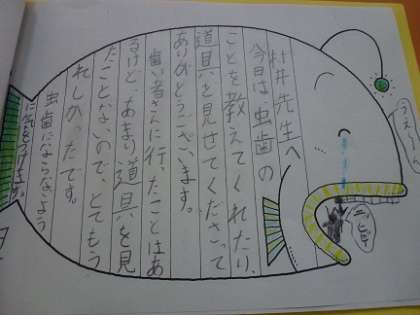 村井先生へ
今日は虫歯の
ことを教えてくれたり、
道具を見せてくださって
ありがとうございます。
歯い者さんに行ったことはあ
るけど、あまり道具を見
たことないので、とてもう
れしかったです。
虫歯にならないよう
に気をつけます。
うえ〜